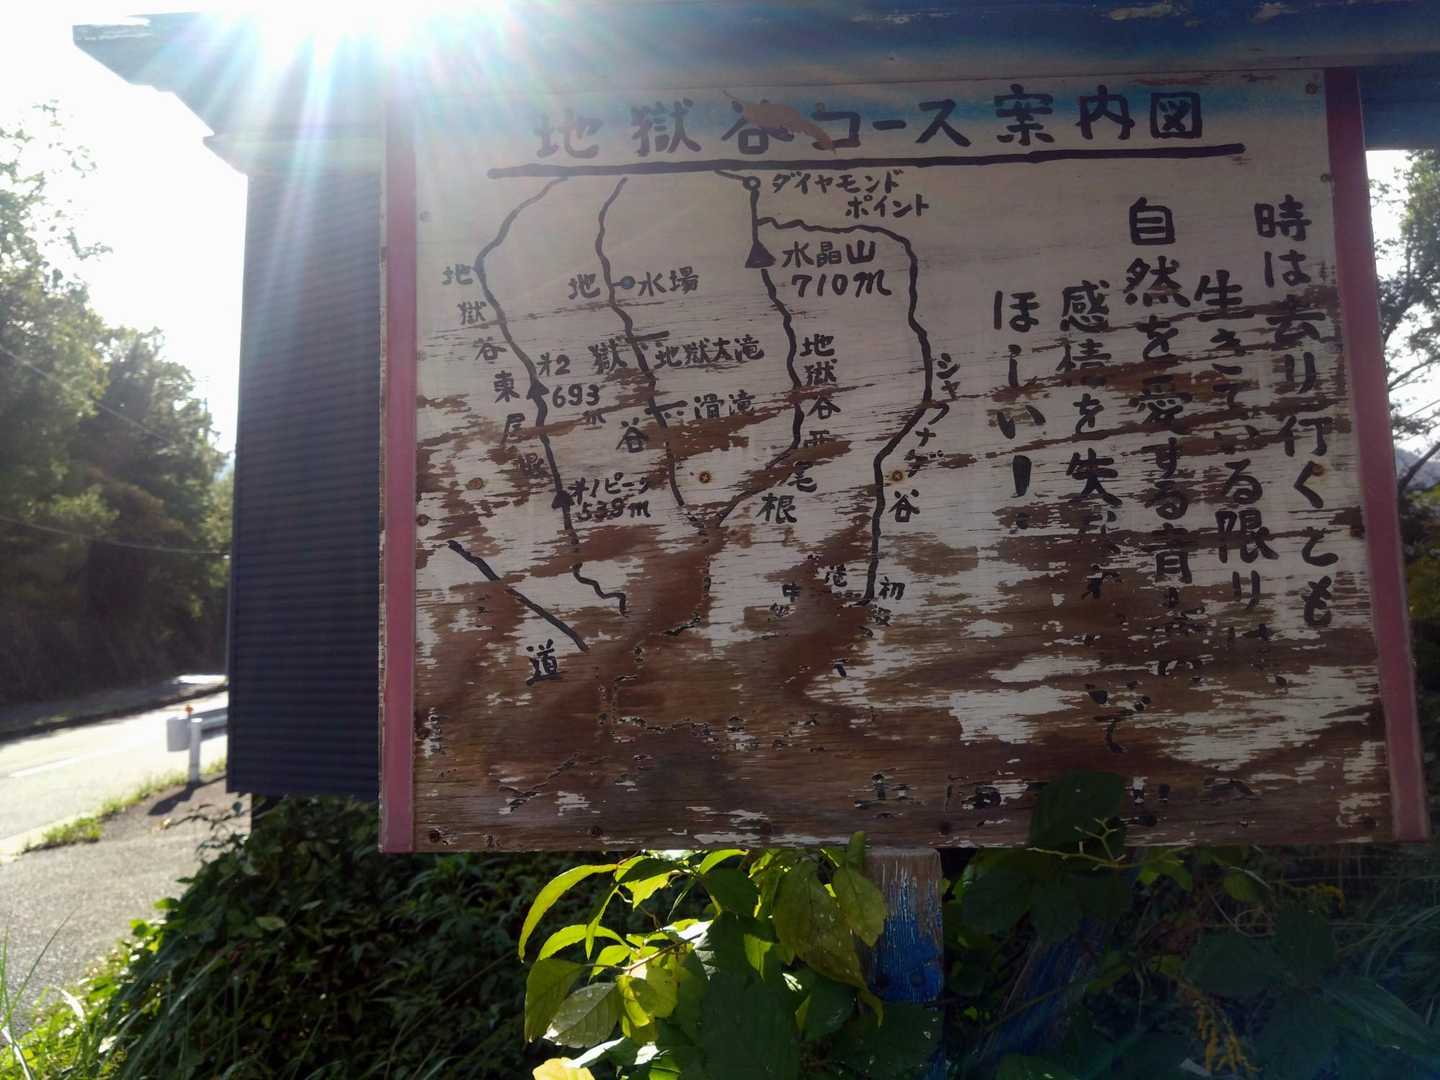 地獄谷コース案内図
ダイヤモンド
ポイント
水晶山
710m
地獄谷東尾根
地獄谷
水場
オ2
693m
地獄大滝
滑滝
オ1ピーク
539m
地獄谷西尾根
シャクナゲ谷
道
時は去り行くとも
生きている限りは
自然を愛する
感情を失
ほしい!